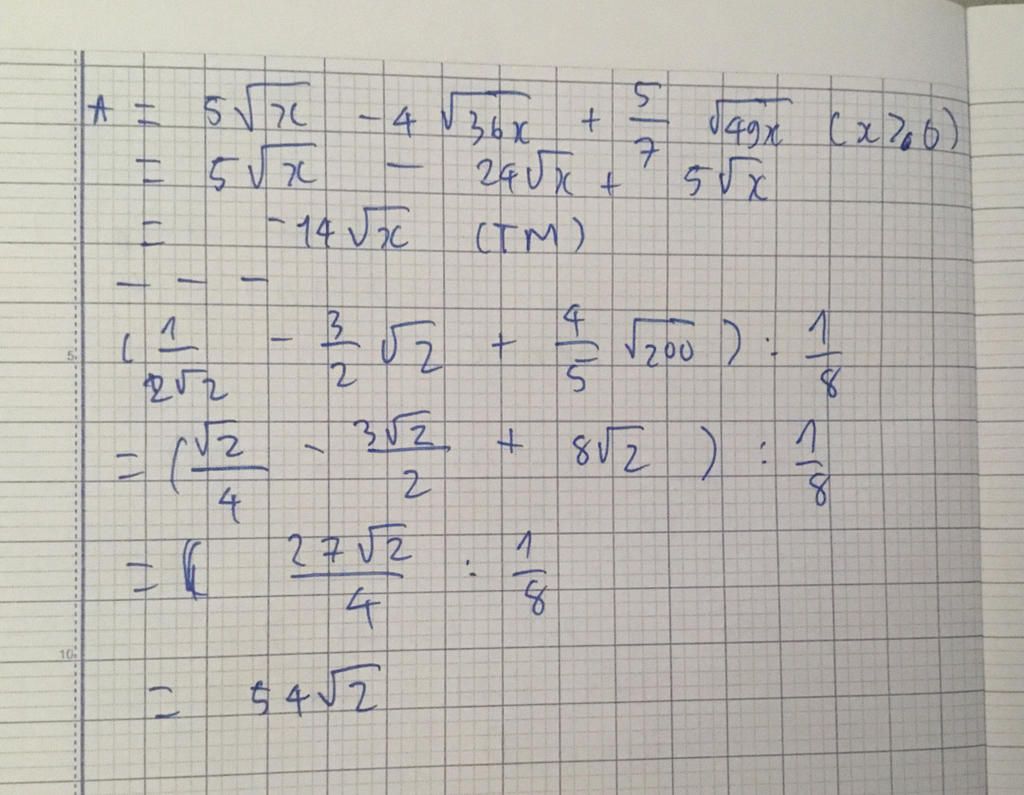 A = 5√x - 4√36x + 5/7 √49x (x ≥ 0)
= 5√x - 24√x + 5√x
= -14√x (TM)
- - -
( 1/2√2 - 3/2 √2 + 4/5 √200 ) : 1/8
= ( √2/4 - 3√2/2 + 8√2 ) : 1/8
= ( 27√2/4 : 1/8
= 54√2
5
10